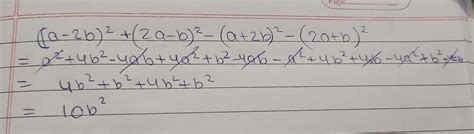 (a-2b)² + (2a-b)² - (a+2b)² - (2a+b)²
= a² + 4b² - 4ab + 4a² + b² - 4ab - a² + 4b² + 4ab - 4a² + b² - 4ab
= 4b² + b² + 4b² + b²
= 10b²